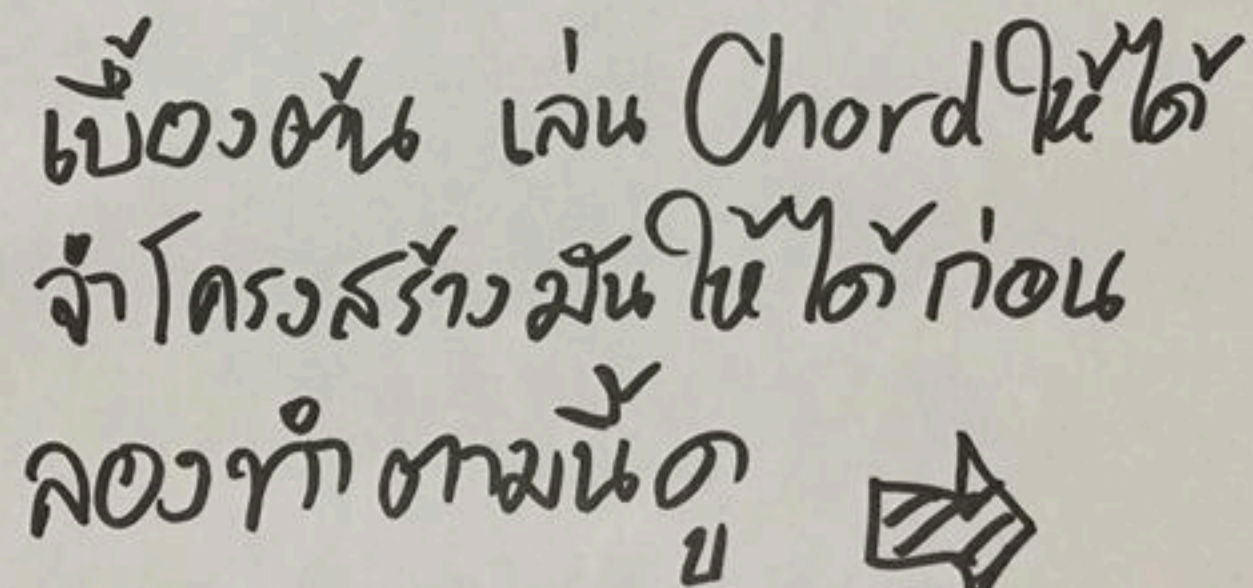 เบื้องต้น เล่น Chord ให้ได้
จำโครงสร้างมันให้ได้ก่อน
ลองทำ ตามนี้ดู